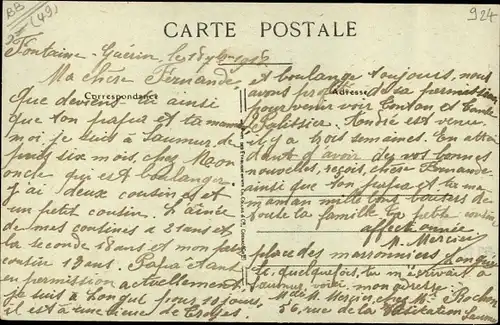 BB
(49)
924
CARTE POSTALE
Correspondance
Adresse
Fontaine-Guérin, le 18
Ma chère Fernande
Que deviens tu ainsi
que ton papa et ta maman
moi je suis à Saumur de-
puis six mois, chez Mon
oncle qui est boulanger
j'ai deux cousines et
un petit cousin. L'ainée
de mes cousines a 21 ans et
la seconde 18 ans et mon petit
cousin 13 ans. Papa étant
en permission actuellement
je suis à Longué pour 10 jours,
il est à une lieue de
et boulange toujours, nous
avons profité de sa permission
pour venir voir Tonton et tante
Palissier. André est venu
il y a trois semaines. En atten
dant d'avoir des vos bonnes
nouvelles, reçois, chère Fernande
ainsi que ton papa et ta ma
maman mille bons baisers de
toute la famille ta petite cousine
affectionnée
M. Mercier
place des marronniers Longué
Si quelquefois, tu m'écrivait à
Saumur, voici mon adresse
Melle M. Mercier chez Mr Rocher
56 rue de la Visitation Saumur